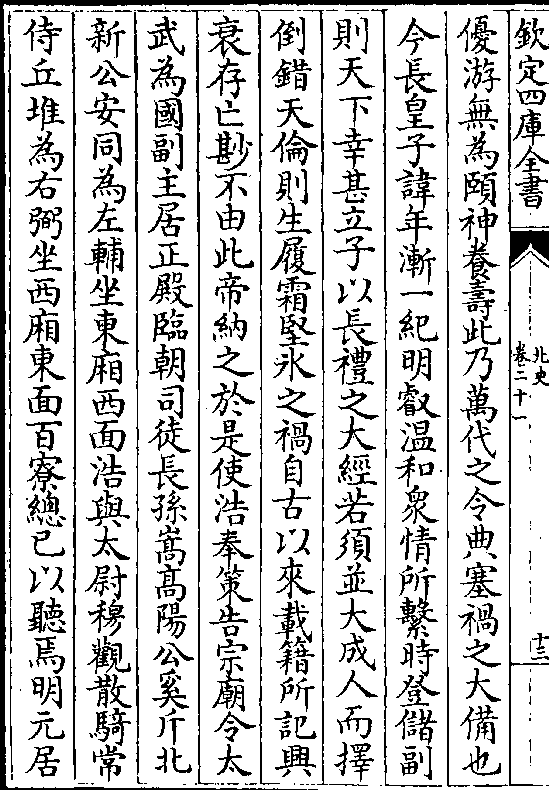 欽定四庫全書
北史
卷二十一
十三
優游無為頤神養壽此乃萬代之令典塞禍之大備也
今長皇子諱年漸一紀明叡温和衆情所繫時登儲副
則天下幸甚立子以長禮之大經若須並大成人而擇
倒錯天倫則生履霜堅氷之禍自古以來載籍所記興
衰存亡尠不由此帝納之於是使浩奉策告宗廟令太
武為國副主居正殿臨朝司徒長孫嵩髙陽公奚斤北
新公安同為左輔坐東廂西面浩與太尉穆觀散騎常
侍丘堆為右弼坐西廂東面百寮總已以聽焉明元居